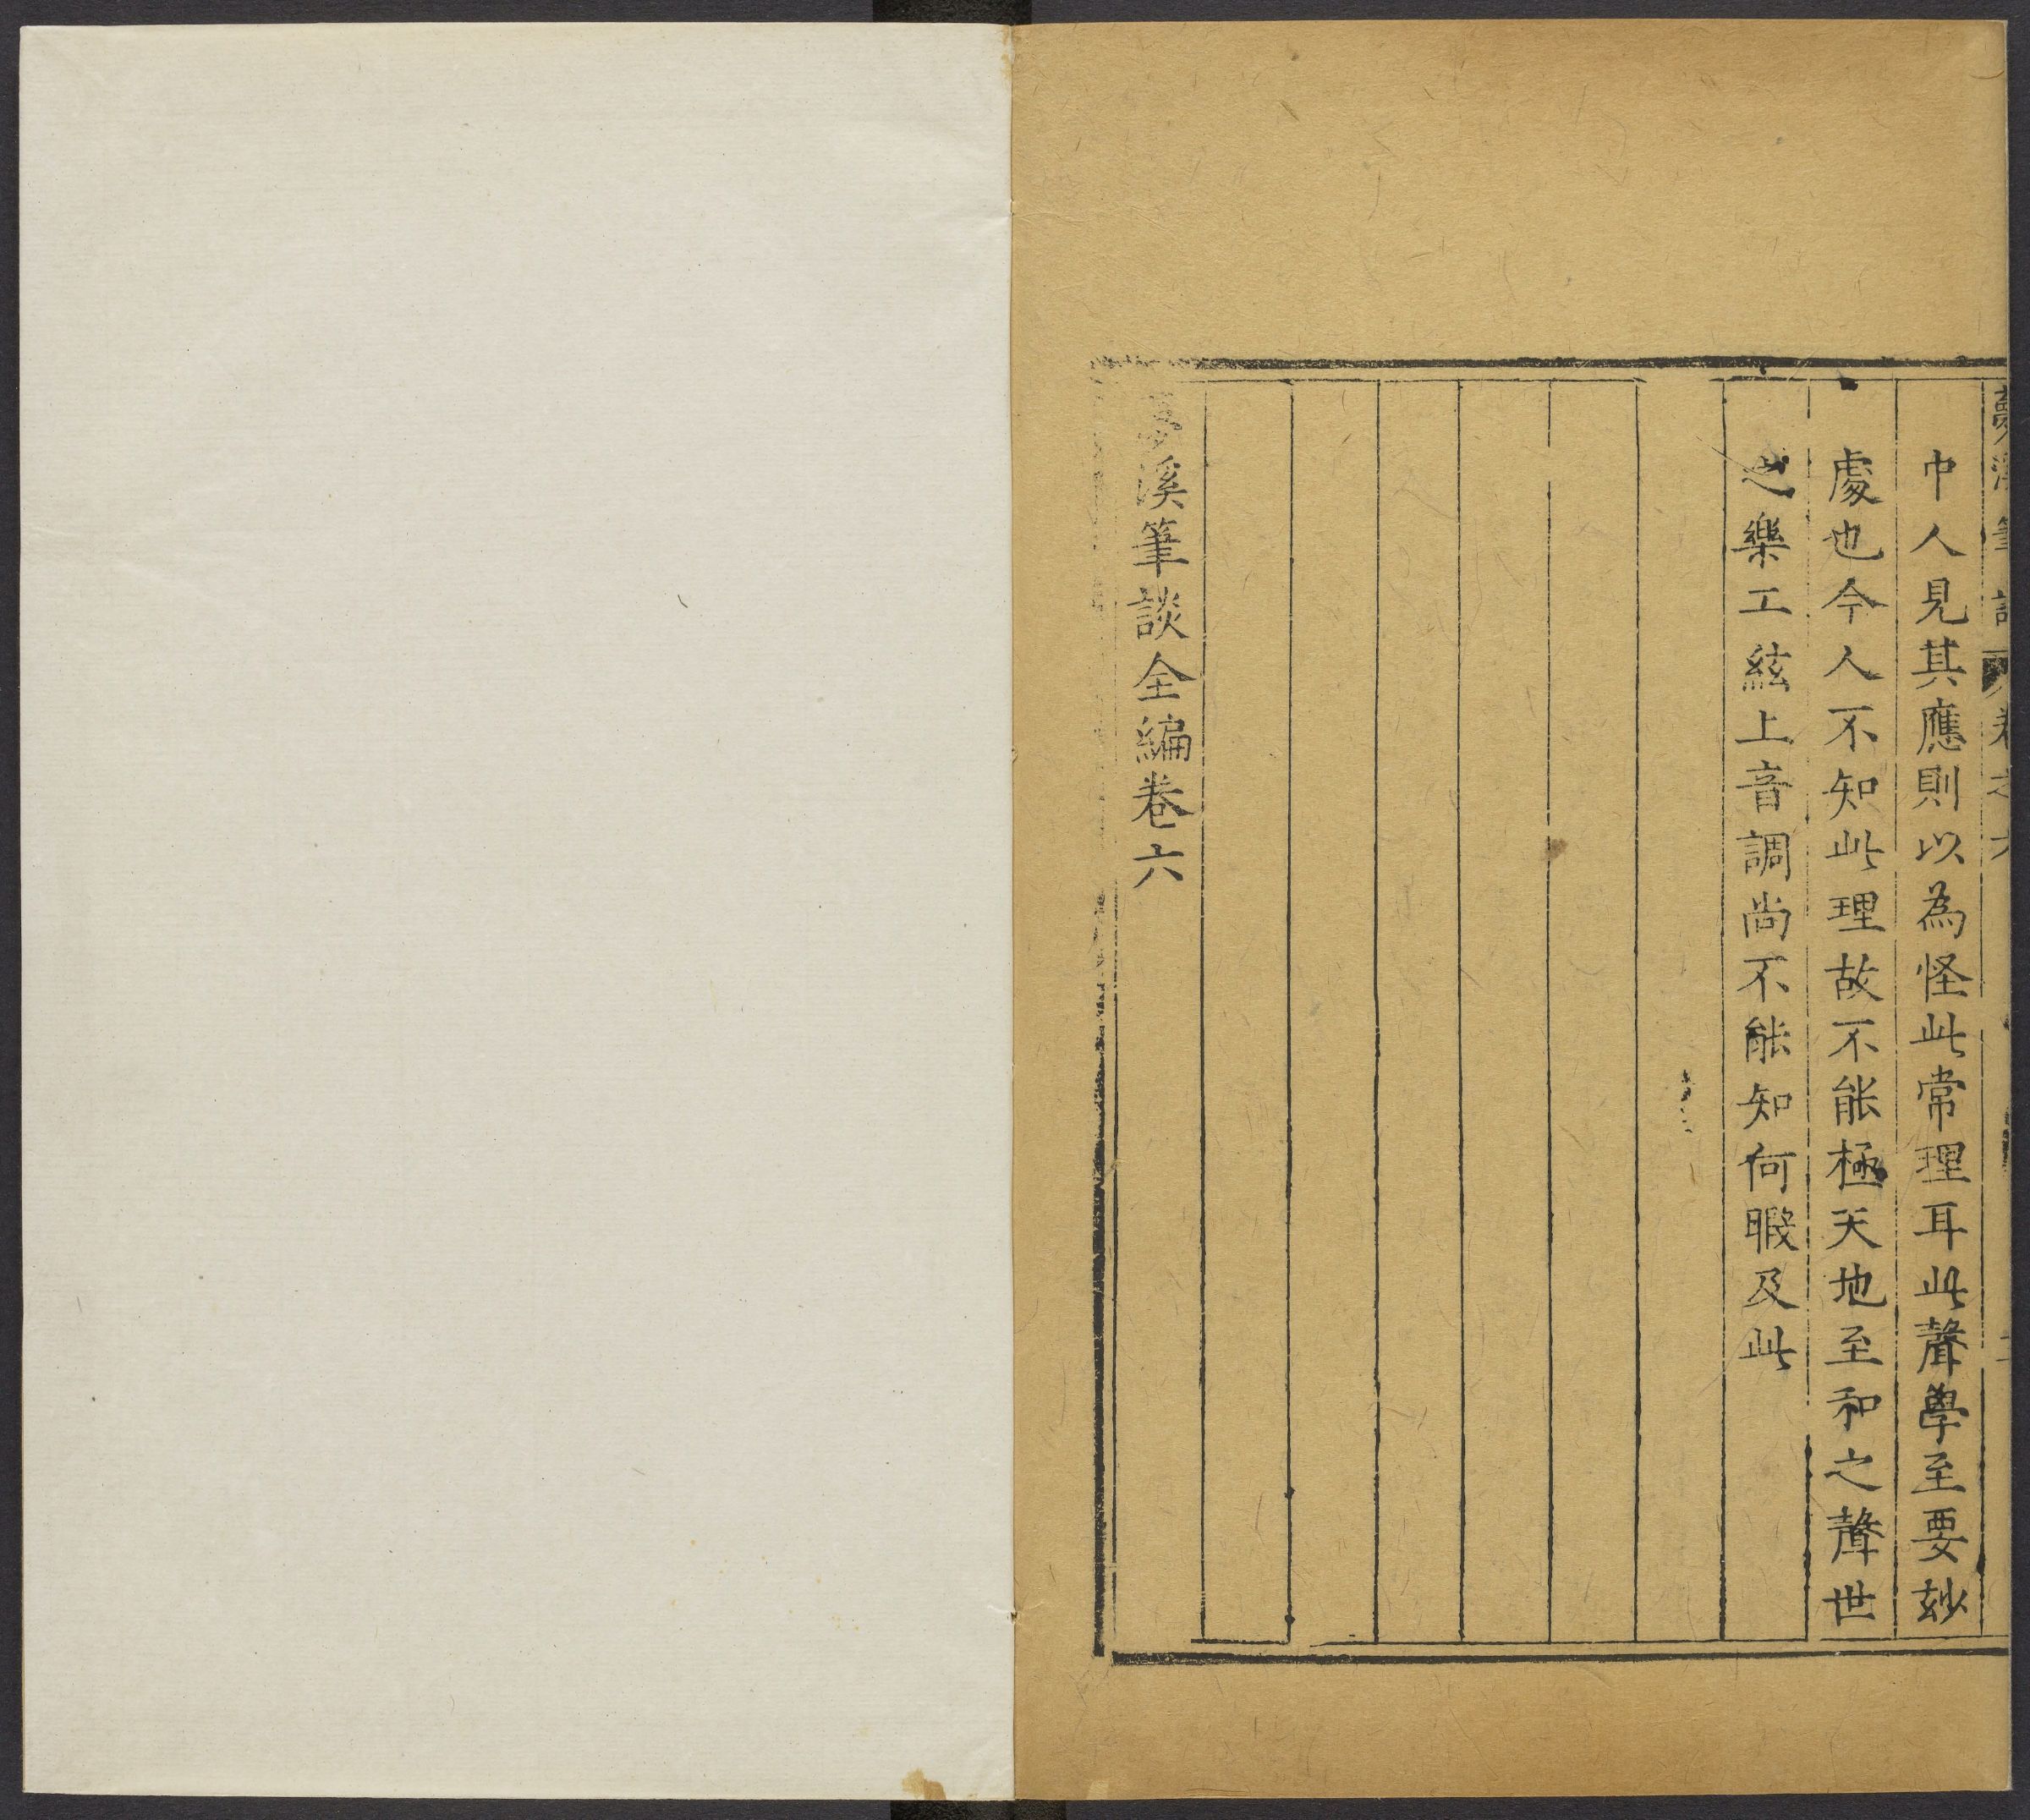 中人見其應則以為怪此常理耳此聲學至要玅
處也今人不知此理故不能極天地至和之聲世
之樂工絃上音調尚不能知何暇及此
夢溪筆談全編卷六